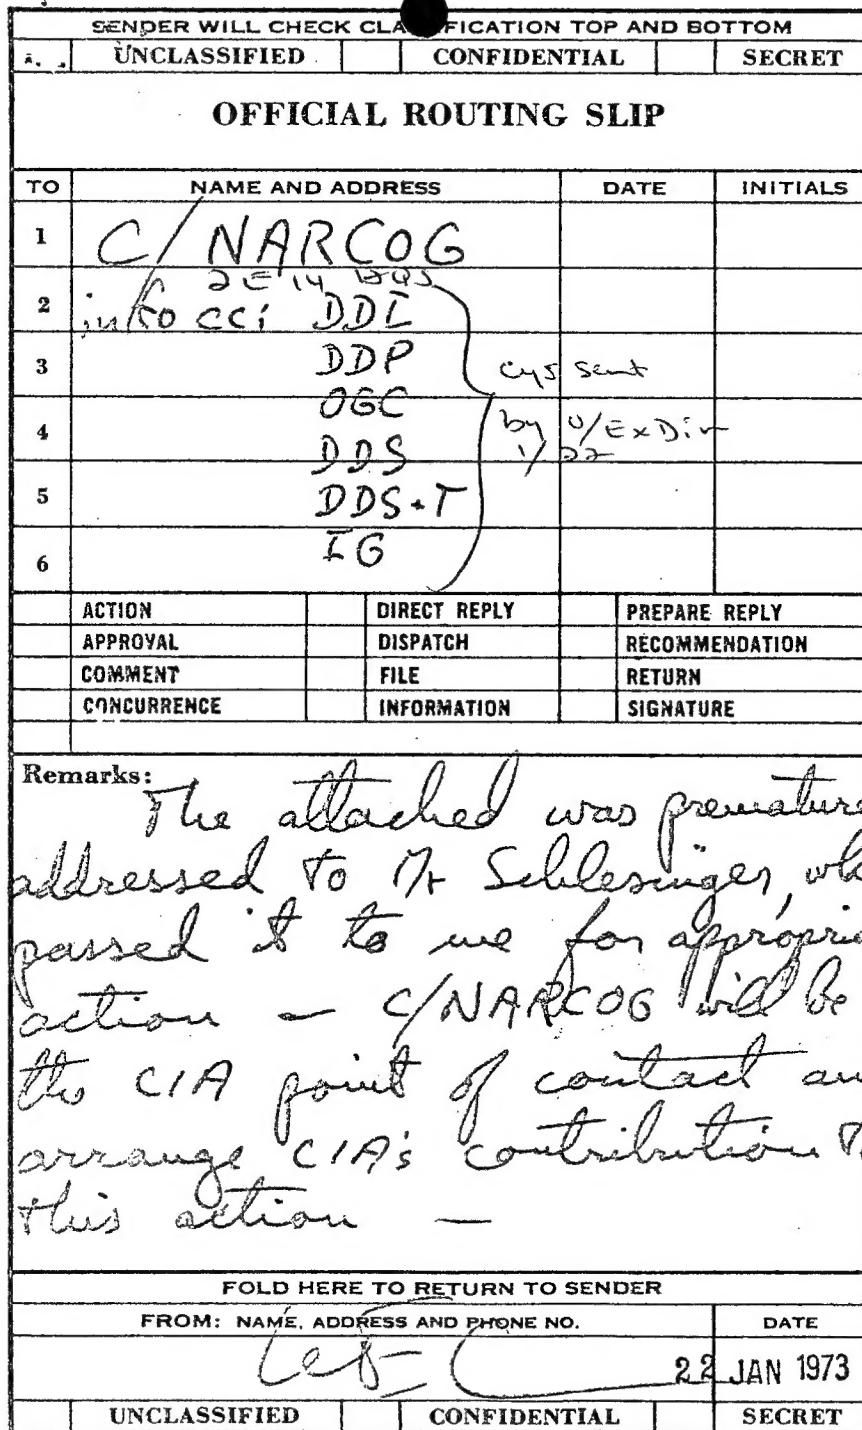 SENDER WILL CHECK CLA FICATION TOP AND BOTTOM
UNCLASSIFIED CONFIDENTIAL SECRET
OFFICIAL ROUTING SLIP
TO NAME AND ADDRESS DATE INITIALS
1 C/NARCOG
2E14 HQS
2 info cc: DDI
3 DDP cys sent
OGC
4 by O/ExDir
DDS 1/22
5 DDS+T
6 IG
ACTION DIRECT REPLY PREPARE REPLY
APPROVAL DISPATCH RECOMMENDATION
COMMENT FILE RETURN
CONCURRENCE INFORMATION SIGNATURE
Remarks:
The attached was premature
addressed to Mr Schlesinger, wh
passed it to me for appropria
action — C/NARCOG will be
the CIA point of contact an
arrange CIA's contribution t
this action —
FOLD HERE TO RETURN TO SENDER
FROM: NAME, ADDRESS AND PHONE NO. DATE
22 JAN 1973
UNCLASSIFIED CONFIDENTIAL SECRET